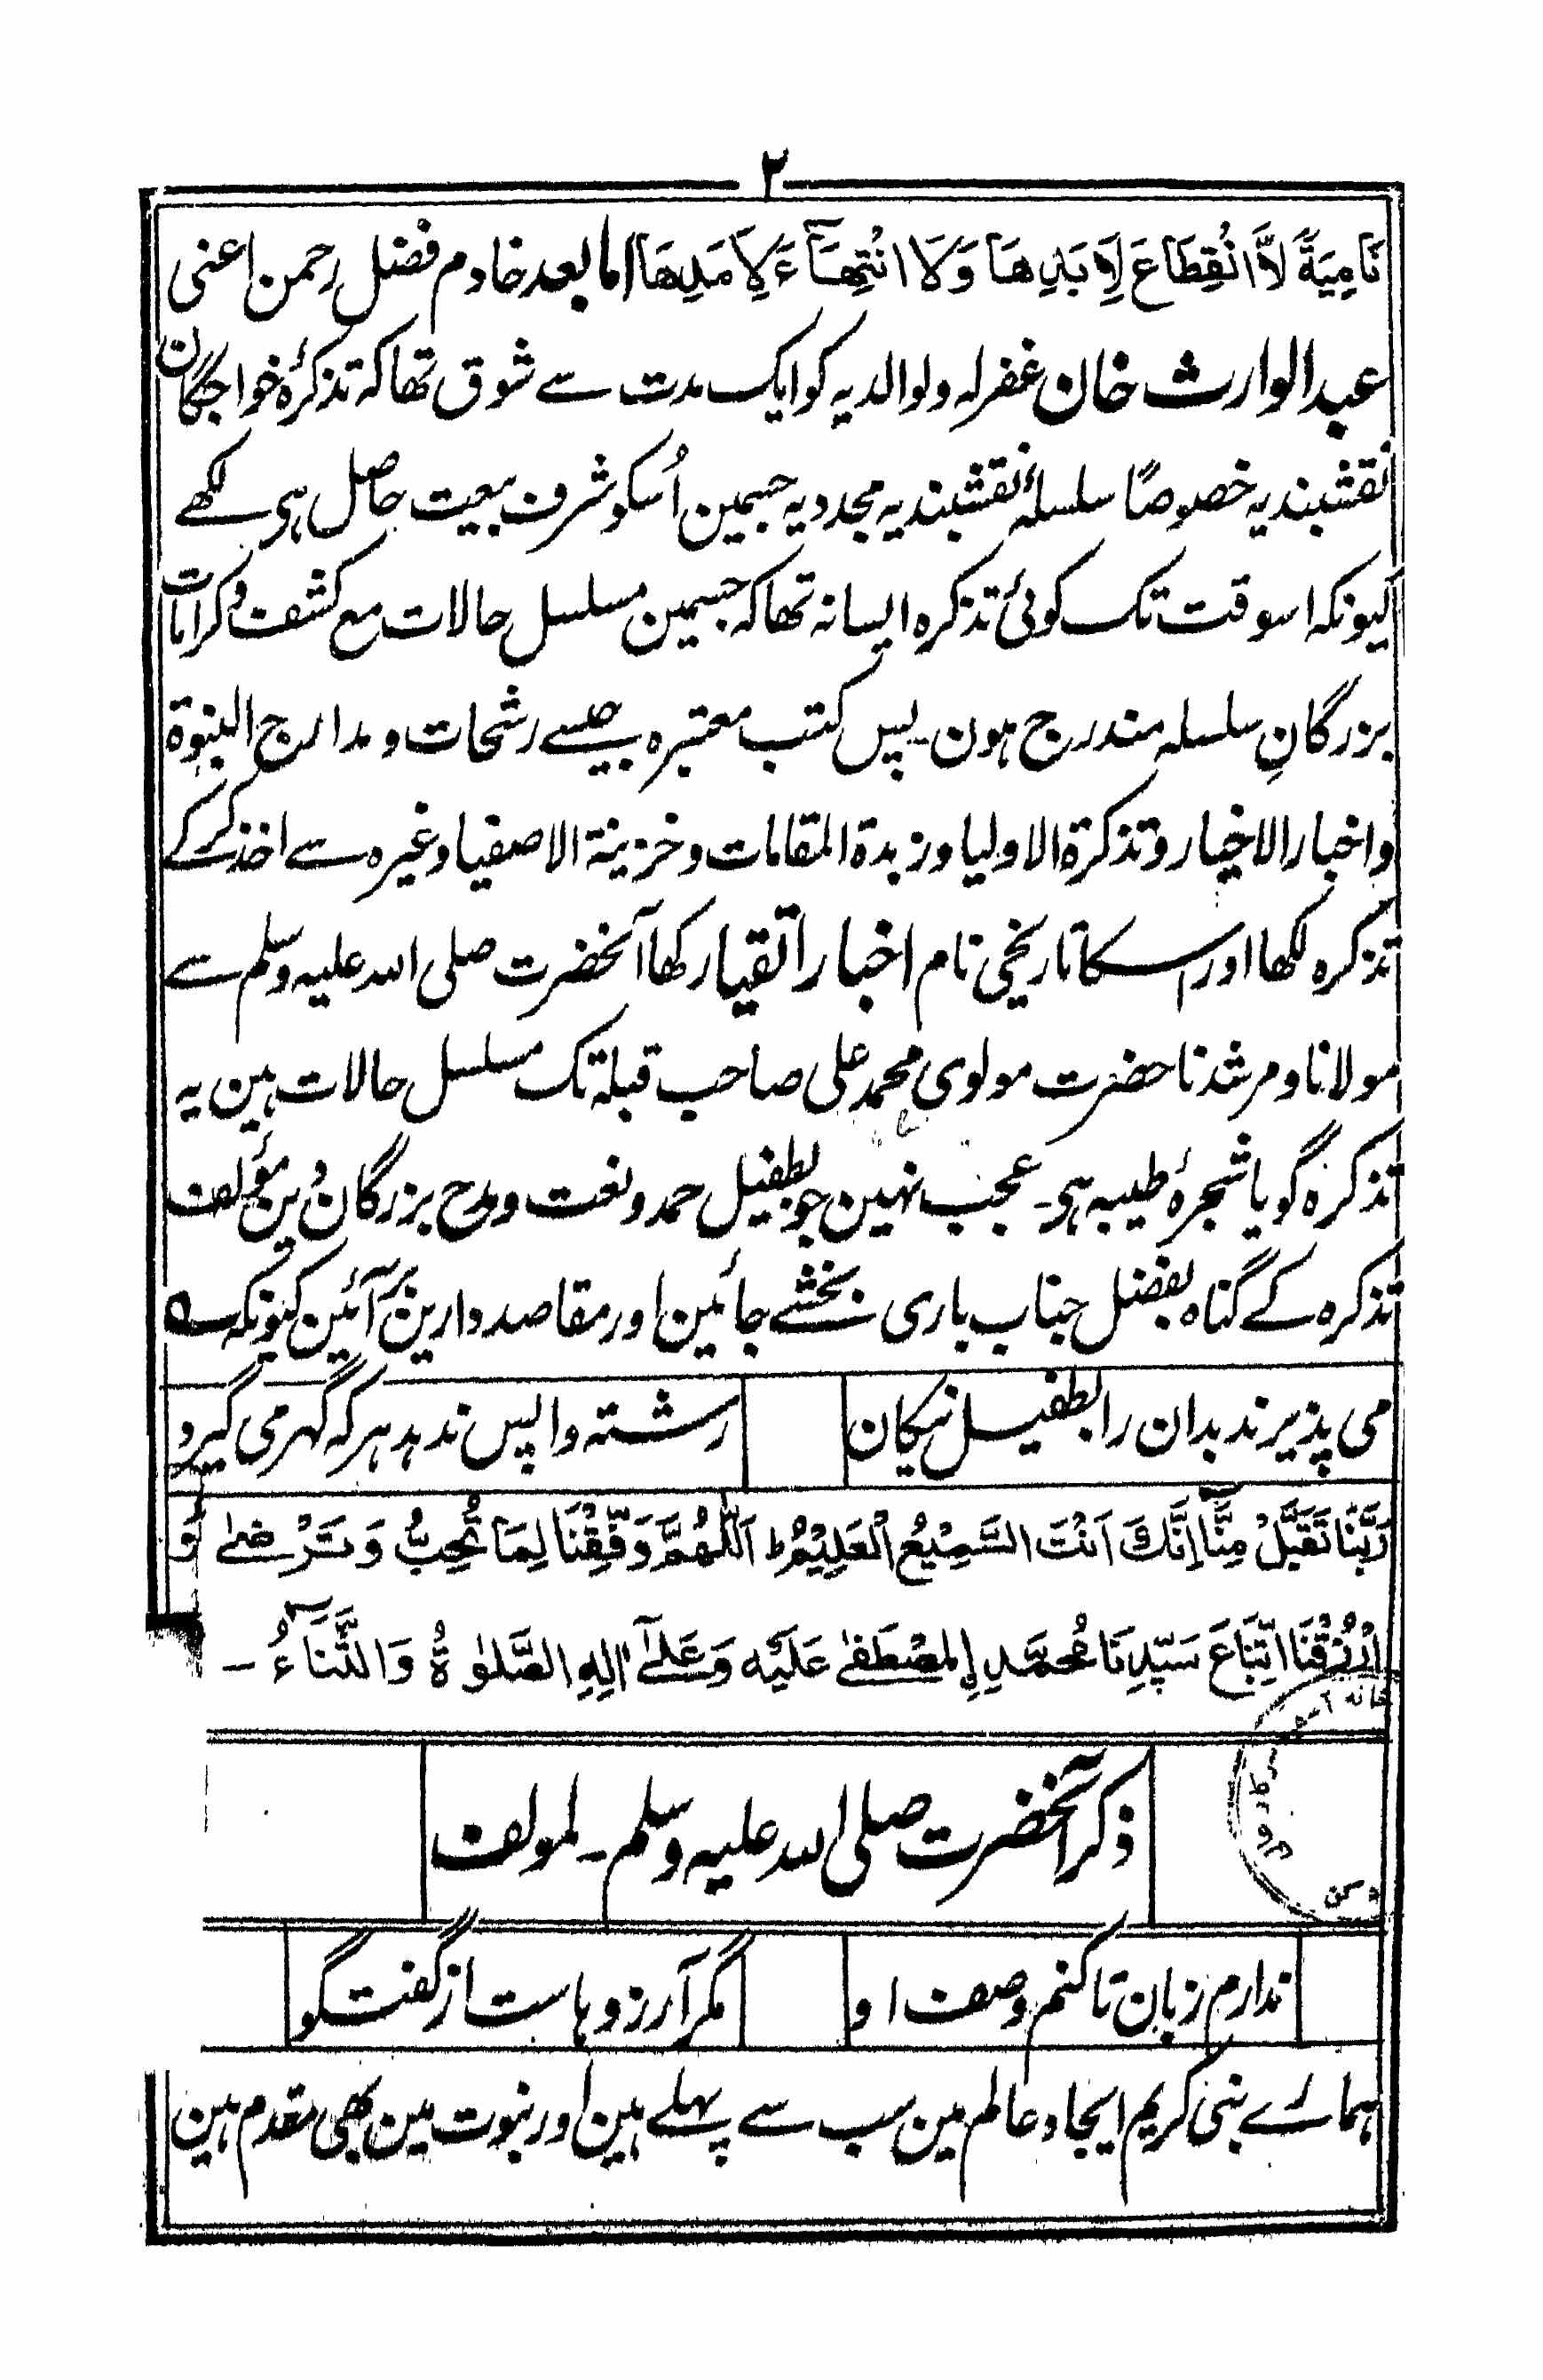 ۲
نَامِیَۃً لَّا انْقِطَاعَ لِاَبَدِهَا وَلَا انْتِهَآءَ لِاَمَدِهَا امابعد خادم فضل رحمن اعنی
عبدالوارث خان غفرلہ ولوالدیہ کو ایک مدت سے شوق تھا کہ تذکرۂ خواجگان
نقشبندیہ خصوصًا سلسلۂ نقشبندیہ مجددیہ جسمین اُسکو شرف بیعت حاصل ہی لکھے
کیونکہ اسوقت تک کوئی تذکرہ ایسا نہ تھا کہ جسمین مسلسل حالات مع کشف و کرامات
بزرگانِ سلسلہ مندرج ہون۔ پس کتب معتبرہ جیسے رشحات و مدارج النبوۃ
و اخبار الاخیار و تذکرۃ الاولیا و زبدۃ المقامات و خزینۃ الاصفیا وغیرہ سے اخذ کرکے
تذکرہ لکھا اور اسکا تاریخی نام اخبار اتقیا رکھا آنحضرت صلی اللہ علیہ وسلم سے
مولانا و مرشدنا حضرت مولوی محمد علی صاحب قبلہ تک مسلسل حالات ہین یہ
تذکرہ گویا شجرۂ طیبہ ہی۔ عجب نہین جو بطفیل حمد و نعت و مدح بزرگان دین مؤلف
تذکرہ کے گناہ بفضل جناب باری بخشے جائین اور مقاصد دارین بر آئین کیونکہ ؎
می پذیرند بدان را بطفیل نیکان رشتہ واپس ندہد ہر کہ گہر می گیرد
رَبَّنَا تَقَبَّلْ مِنَّآ اِنَّكَ اَنْتَ السَّمِیْعُ الْعَلِیْمُ ط اَللّٰهُمَّ وَفِّقْنَا لِمَا تُحِبُّ وَتَرْضٰی وَ
ارْزُقْنَا اتِّبَاعَ سَیِّدِنَا مُحَمَّدِ ِالْمُصْطَفٰی عَلَیْهِ وَعَلٰٓی اٰلِهِ الصَّلٰوۃُ وَالثَّنَآءُ ۔
ذکر آنحضرت صلی اللہ علیہ وسلم۔ لمولف
ندارم زبان تا کنم وصف او مگر آرزوہاست از گفتگو
ہمارے نبی کریم ایجاد عالم مین سب سے پہلے ہین اور نبوت مین بھی مقدم ہین